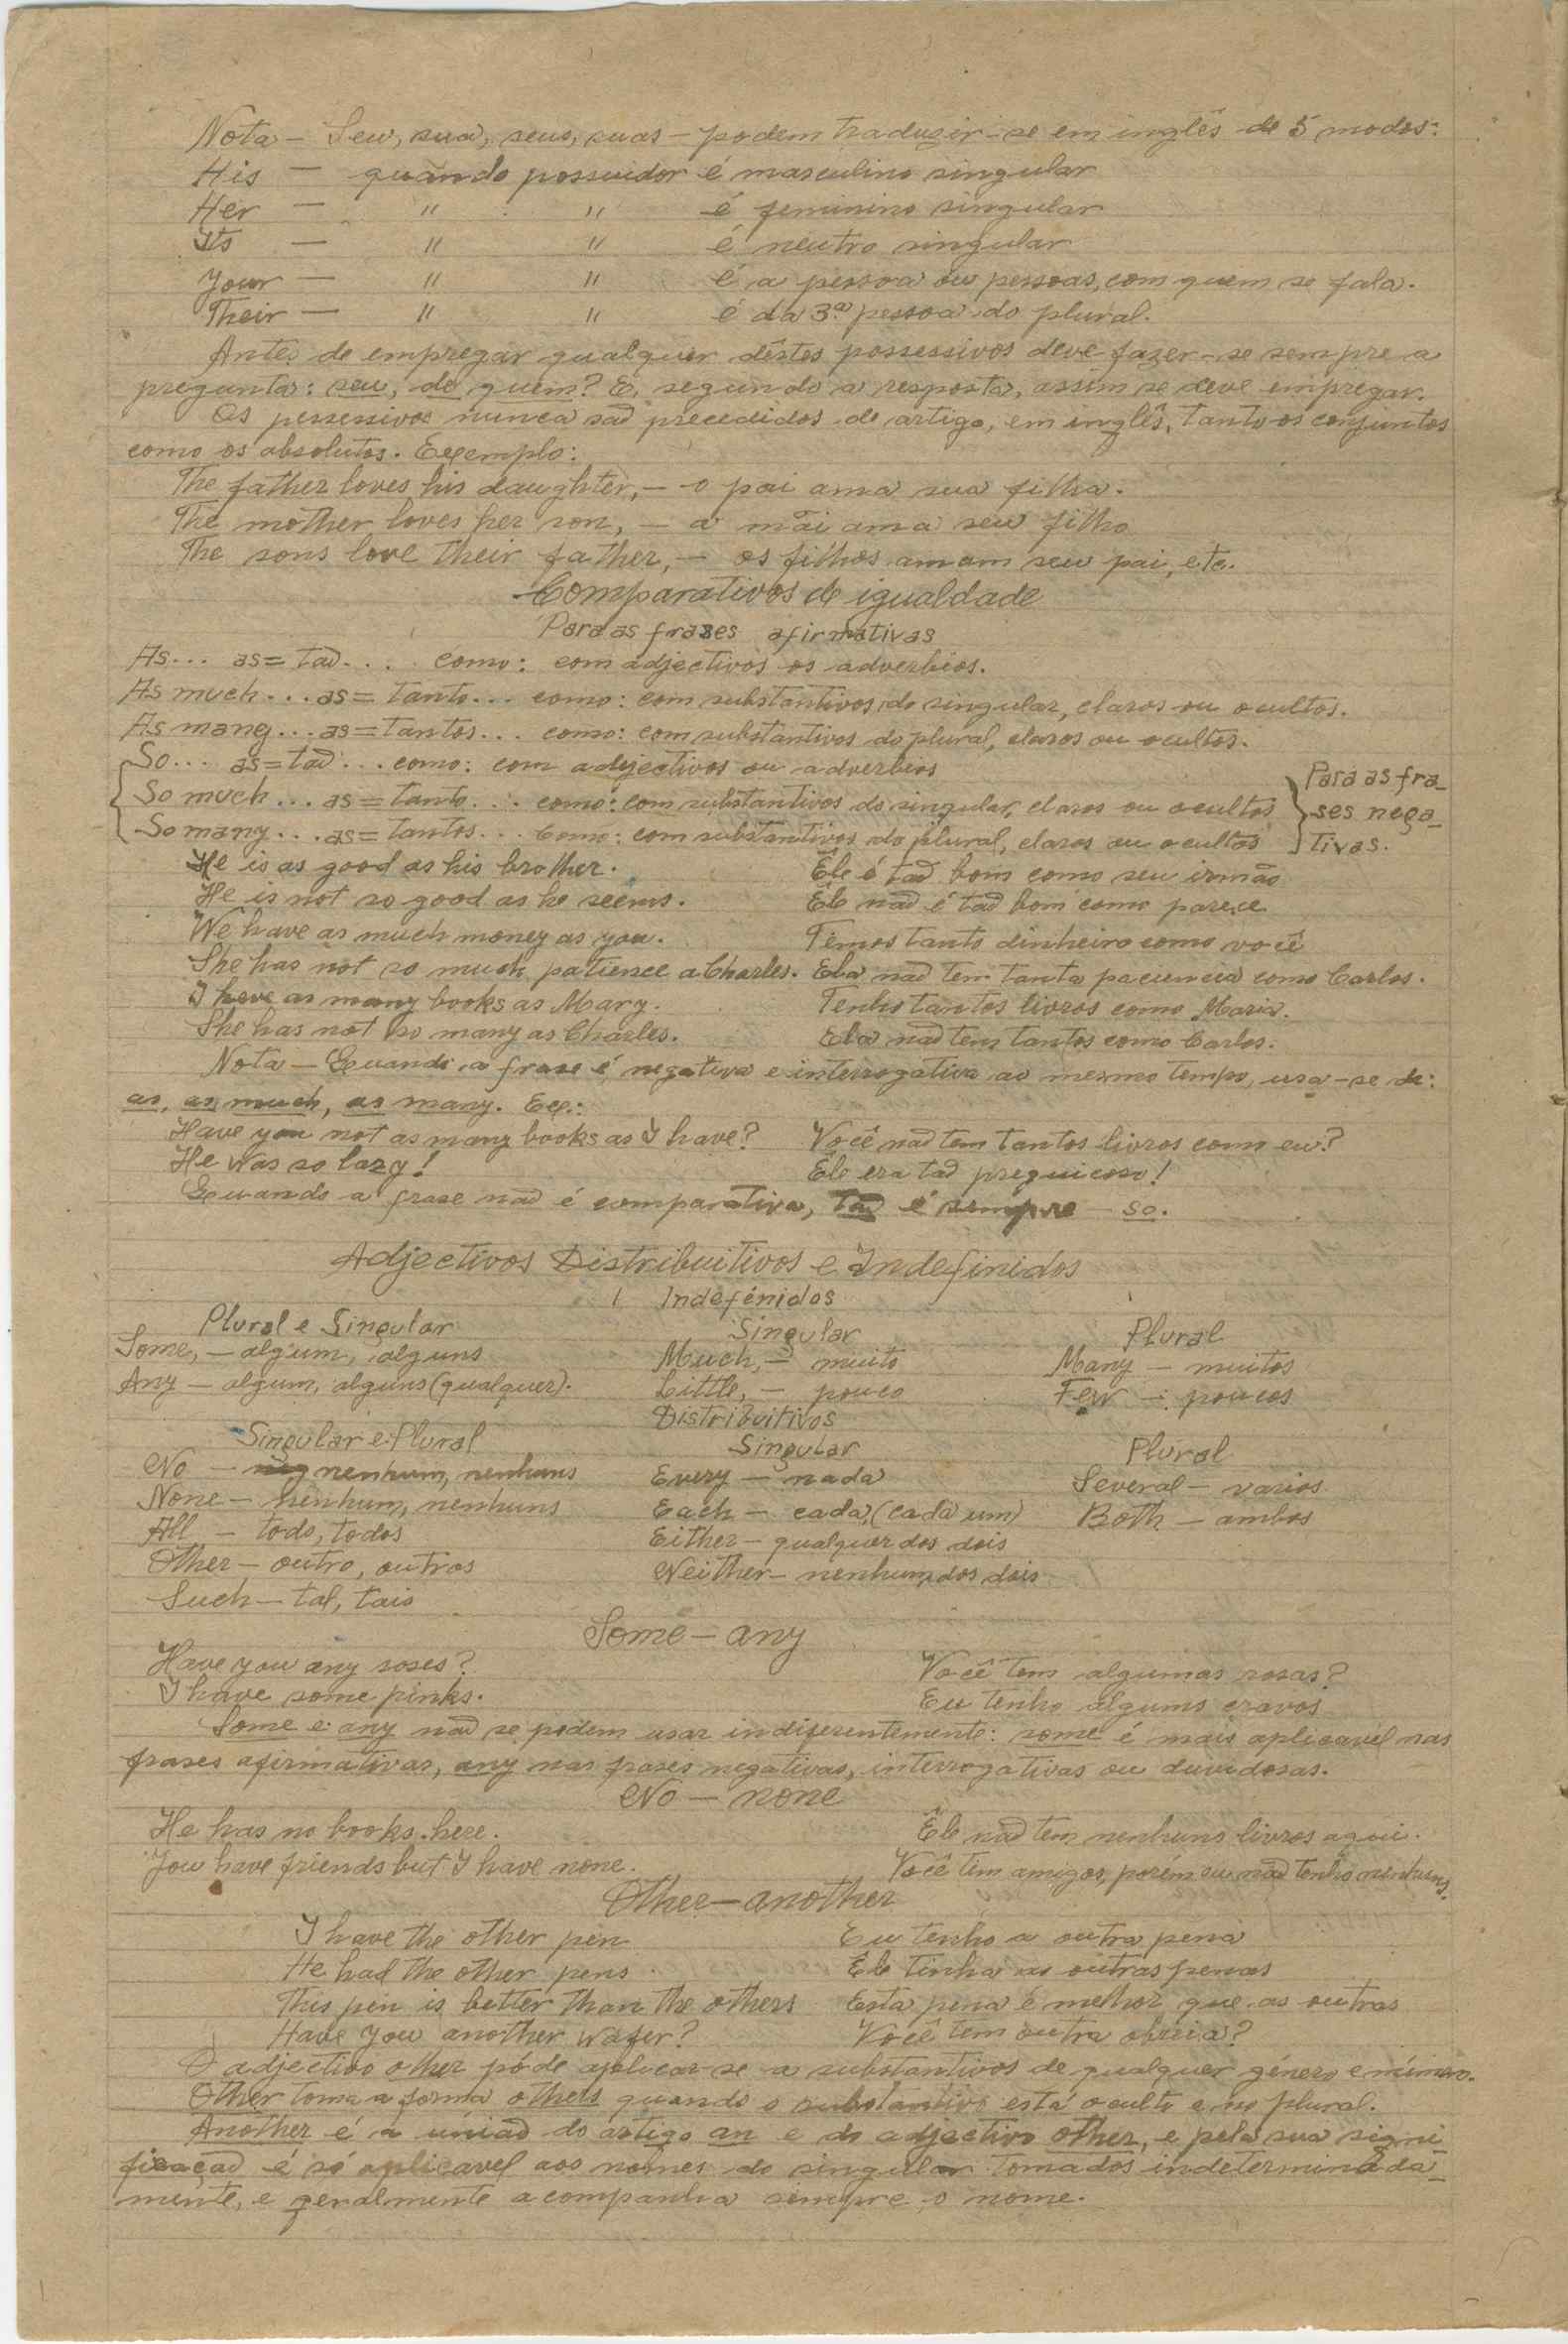 Nota — Seu, sua, seus, suas — podem traduzir-se em inglês de 5 modos:
His — quando possuidor é masculino singular
Her — " " é feminino singular
Its — " " é neutro singular
Your — " " é a pessoa ou pessoas, com quem se fala.
Their — " " é da 3ª pessoa do plural.
Antes de empregar qualquer dêstes possessivos deve fazer-se sempre a
pregunta: seu, de quem? E, segundo a resposta, assim se deve empregar.
Os possessivos nunca saõ precedidos de artigo, em inglês, tanto os conjuntos
como os absolutos. Exemplo:
The father loves his daughter, — o pai ama sua filha.
The mother loves her son, — a mãi ama seu filho
The sons love their father, — os filhos amam seu pai, etc.
Comparativos de igualdade
Para as frases afirmativas
As... as = taõ... como: com adjectivos os adverbios.
As much... as = tanto... como: com substantivos do singular, claros ou ocultos.
As many... as = tantos... como: com substantivos do plural, claros ou ocultos.
So... as = taõ... como: com adjectivos ou adverbios
So much... as = tanto... como: com substantivos do singular, claros ou ocultos
So many... as = tantos... como: com substantivos do plural, claros ou ocultos
Para as fra-
ses nega-
tivas.
He is as good as his brother. Êle é taõ bom como seu irmão
He is not so good as he seems. Êle naõ é taõ bom como parece
We have as much money as you. Temos tanto dinheiro como você
She has not so much patience a Charles. Ela naõ tem tanta paciencia como Carlos.
I have as many books as Mary. Tenho tantos livros como Maria.
She has not so many as Charles. Ela naõ tem tantos como Carlos.
Nota — Quando a frase é negativa e interrogativa ao mesmo tempo, usa-se de:
as, as much, as many. Ex.:
Have you not as many books as I have? Você naõ tem tantos livros como eu?
He was so lazy! Êle era taõ preguicoso!
Quando a frase naõ é comparativa, taõ é sempre — so.
Adjectivos Distribuitivos e Indefinidos
Indefénidos
Plural e Singular Singular Plural
Some, — algum, alguns Much, — muito Many — muitos
Any — algum, alguns (qualquer). Little, — pouco Few — poucos
Distribuitivos
Singular e Plural Singular Plural
No — nenhum, nenhuns Every — nada Several — varios
None — nenhum, nenhuns Each — cada, (cada um) Both — ambos
All — todo, todos Either — qualquer dos dois
Other — outro, outros Neither — nenhum dos dois
Such — tal, tais
Some — any
Have you any roses? Você tem algumas rosas?
I have some pinks. Eu tenho alguns cravos
Some e any naõ se podem usar indiferentemente: some é mais aplicavel nas
frases afirmativas, any nas frases negativas, interrogativas ou duvidosas.
No — none
He has no books here. Êle naõ tem nenhuns livros aqui.
You have friends but I have none. Você tem amigos, porém eu naõ tenho nenhuns.
Other — another
I have the other pen Eu tenho a outra pena
He had the other pens Êle tinha as outras penas
This pen is better than the others Esta pena é melhor que as outras
Have you another wafer? Você tem outra obreia?
O adjectivo other póde aplicar-se a substantivos de qualquer género e número.
Other toma a forma others quando o substantivo está oculto e no plural.
Another é a uniaõ do artigo an e do adjectivo other, e pela sua signi
ficaçaõ é só aplicavel aos nomes do singular tomados indeterminada-
mente, e geralmente acompanha sempre o nome.